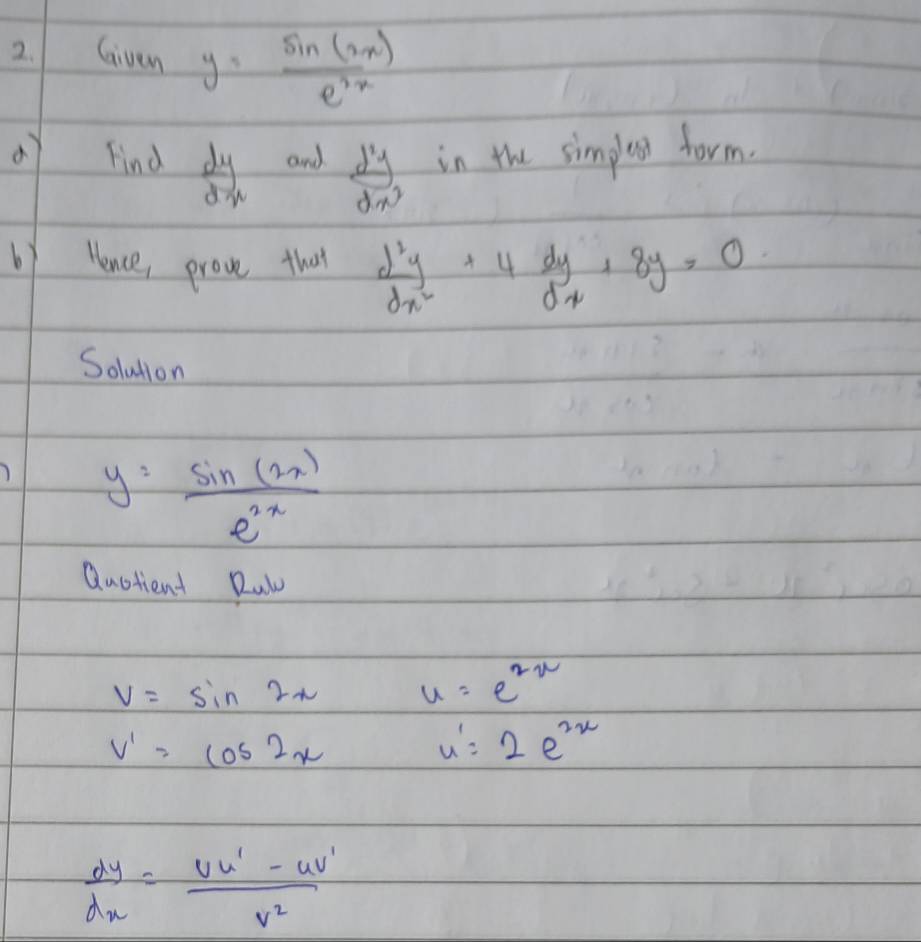 2. Given y = sin (2x) / e^2x
a) Find dy/dx and d²y/dx² in the simplest form.
b) Hence, prove that d²y/dx² + 4 dy/dx + 8y = 0.
Solution
y = sin (2x) / e^2x
Quotient Rule
v = sin 2x u = e^2x
v' = cos 2x u' = 2 e^2x
dy/dx = vu' - uv' / v²